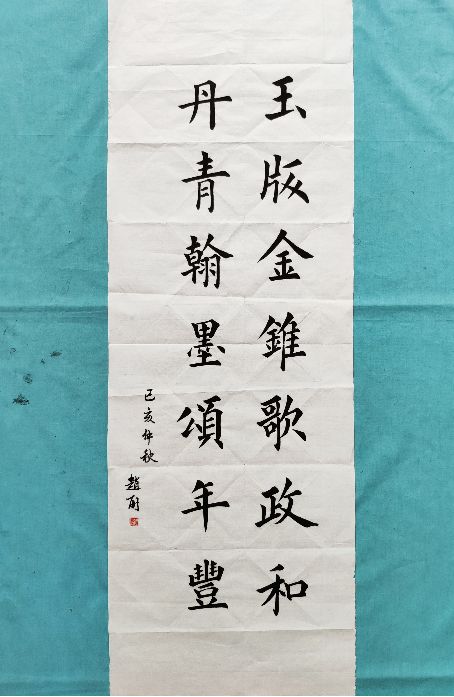 玉版金錐歌政和
丹青翰墨頌年豐
己亥仲秋
趙